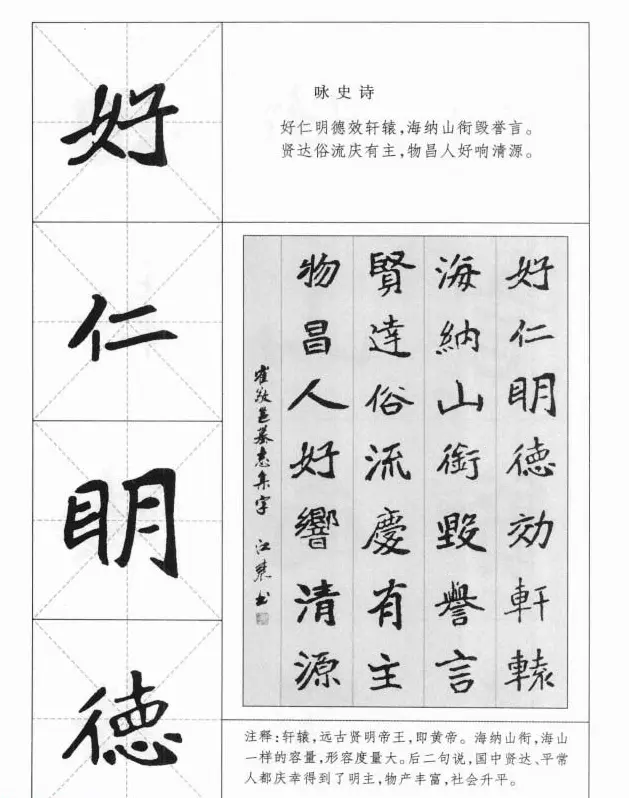 好
仁
明
德
咏史诗
好仁明德效轩辕，海纳山衔毁誉言。
贤达俗流庆有主，物昌人好响清源。
好仁明德効軒轅
海納山銜毀譽言
賢達俗流慶有主
物昌人好響清源
崔敬邕墓志集字 江 书
注释：轩辕，远古贤明帝王，即黄帝。海纳山衔，海山
一样的容量，形容度量大。后二句说，国中贤达、平常
人都庆幸得到了明主，物产丰富，社会升平。